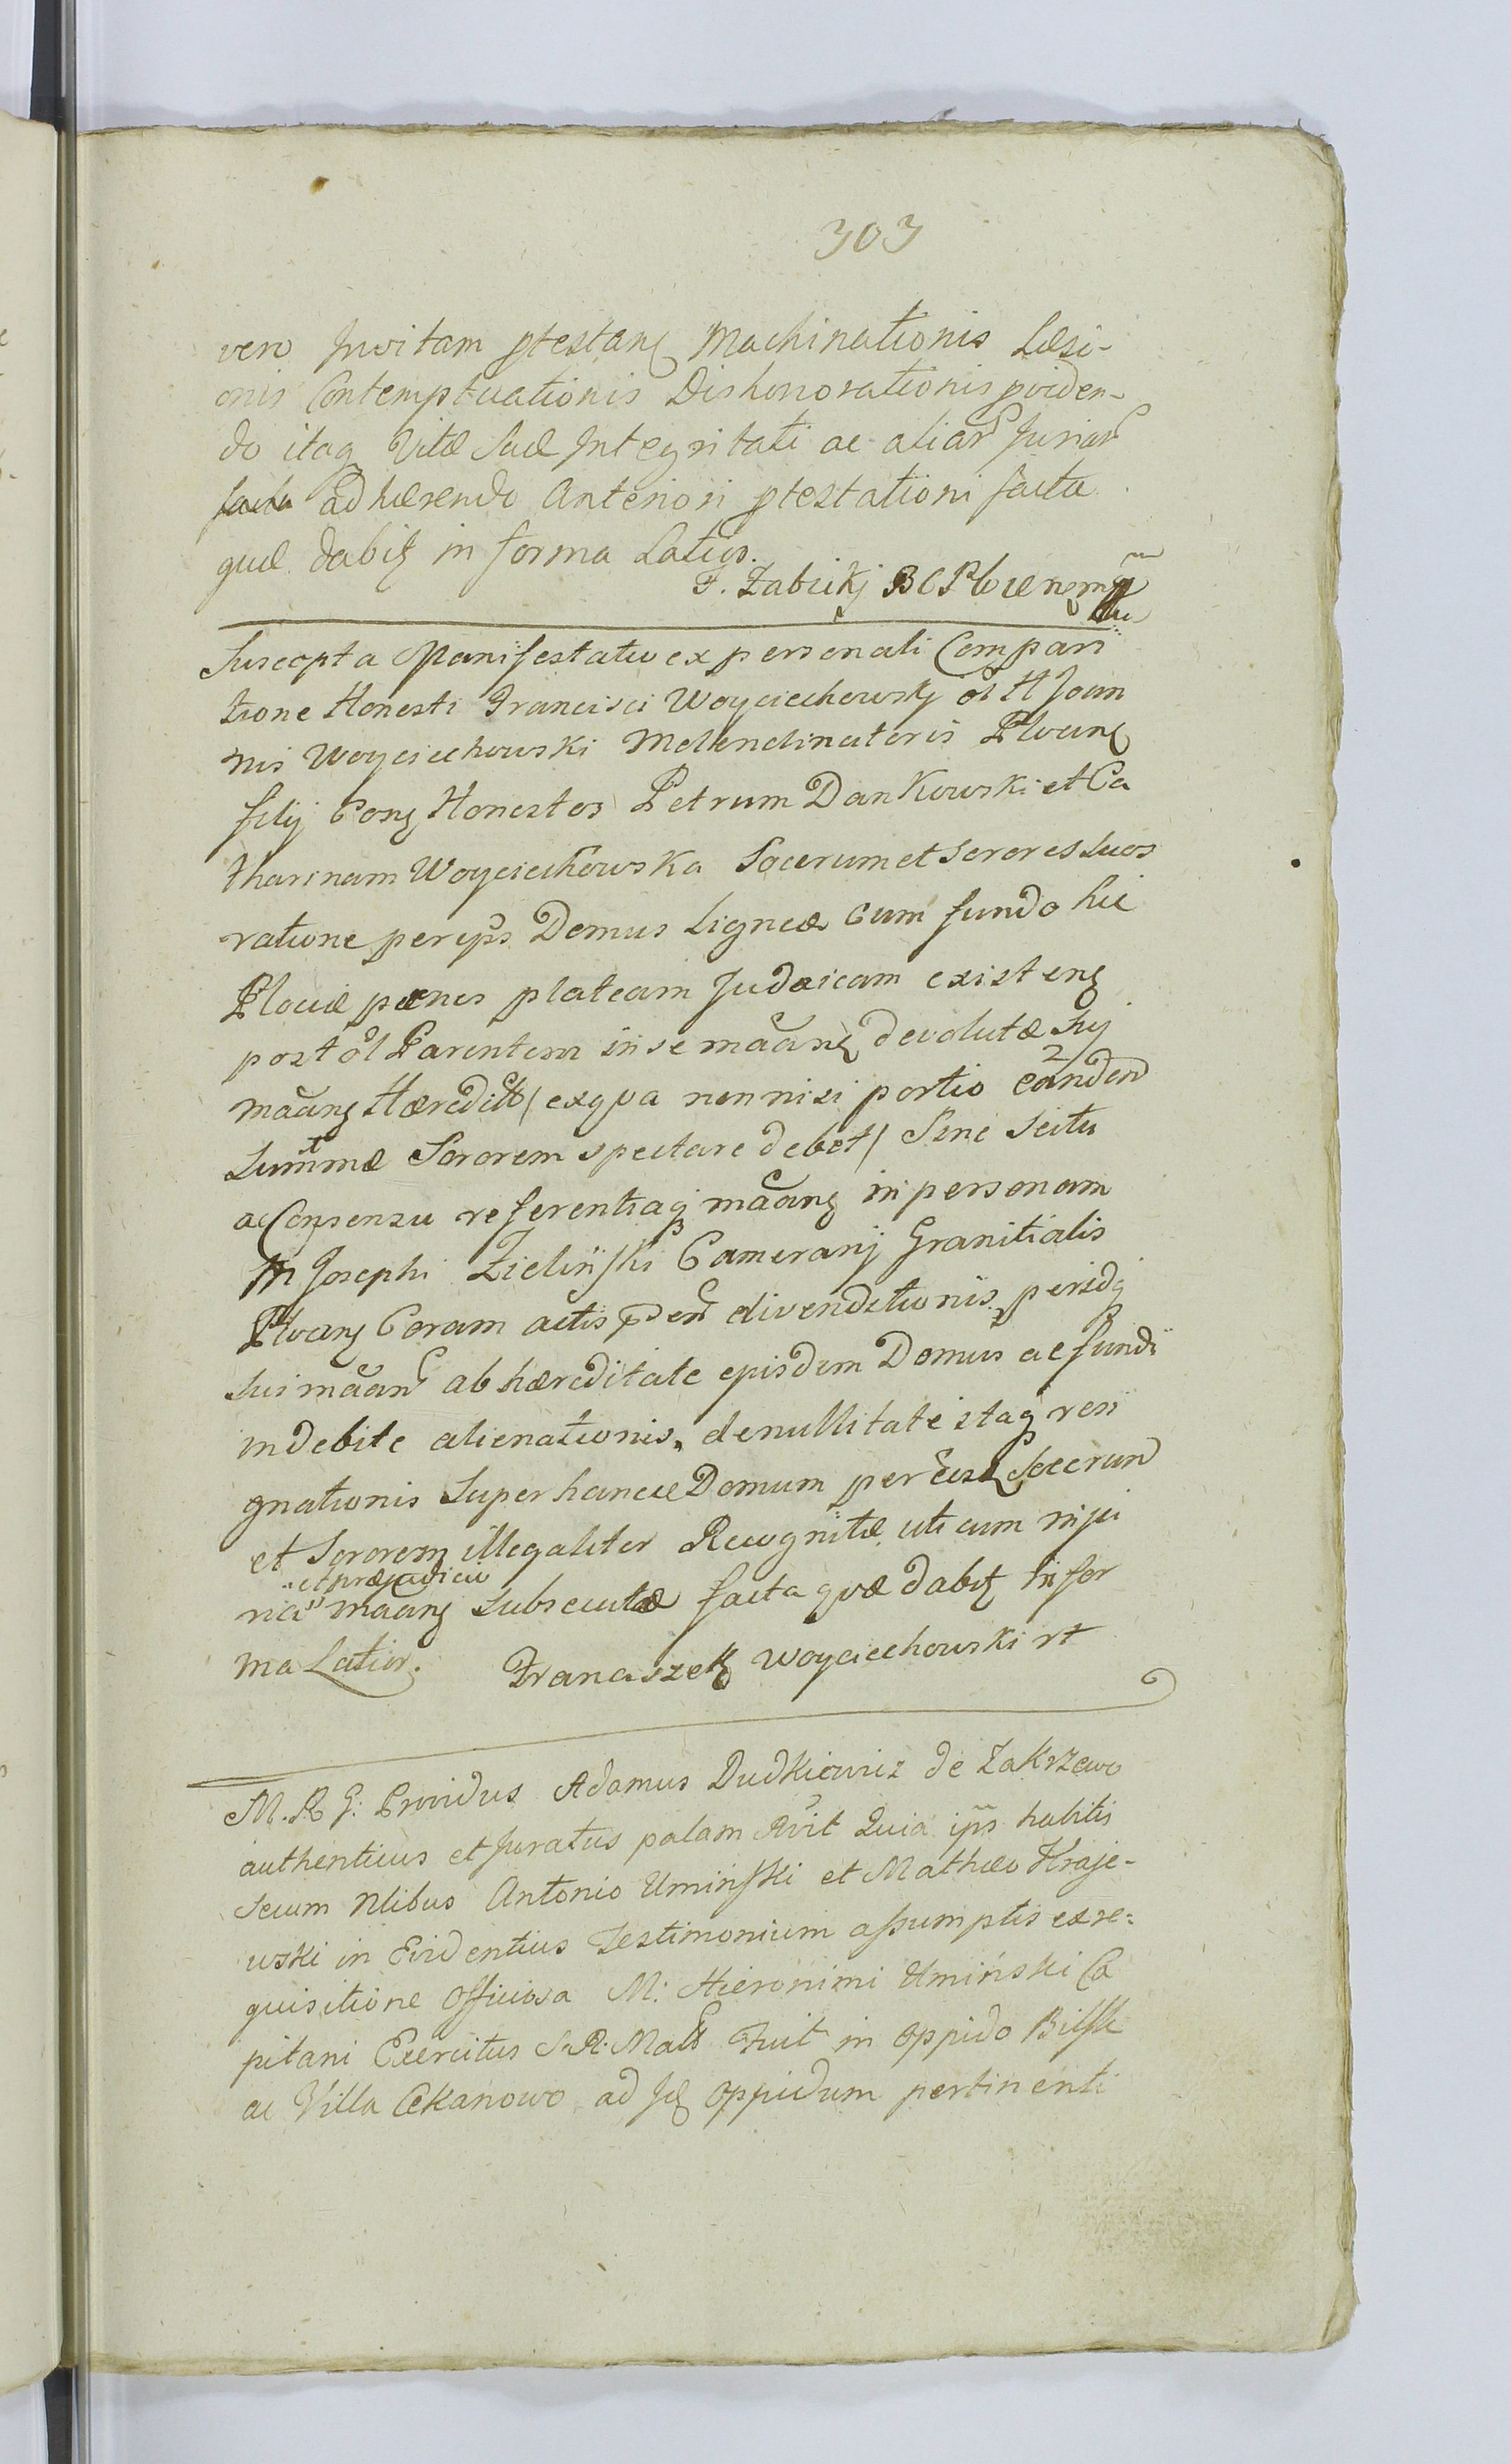 303
vero Invitam ptestang Machinationis Læsi-
onis Contemptuationis Dishonorationis pviden-
do itaq Vitæ suæ Integritati ac aliar Juriar
adhærendo Anteriori ptestationi facta
quæ dabit in forma Latior.
F. Zabickj BCPlocen
Suscepta Manifestatio ex personali Compari
tione Honesti Francisci Woyciechowskj ol H Joan
nis Woyciechowski Molendinatoris Plocens
filij Cong Honestos Petrum Dankowski et Ca
tharinam Woyciechowska Socerum et Sorores suos
ratione Domus Ligneæ cum fundo hic
Plociæ pænes plateam Judaicam existeng
post ol Parentem in se maãng devolutæ suj
maãng Hæredit / ex qva non nisi portio eãndem
summæ Sororem spectare debet / Sine scitu
ac Consensu referentiaq maãng in personam
M Josephi Zielinski Cameranj Granitialis
Plocen Coram actis divenditionis peridq
sui maãn ab hæreditate ejusdem Domus ac fundi
indebite alienationis, de nullitate itaq resi
gnationis super hancce Domum per eosd Socerum
et Sororem illegaliter Recognitæ uti cum inju
et præjudicio
ria maãng subsecutæ facta qvæ dabit in for
ma Latior. Franciszek Woyciechowski rt
M. R G: Providus Adamus Dudkiewicz de Zakrzewo
authenticus et Juratus palam Rvit Quia ips habitis
secum Nlibus Antonio Uminski et Mathæo Kraje-
wski in Evidentius Testimonium assumptis ex re-
quisitione officiosa M: Hieronimi Uminski Ca
pitani Exercitus S. R. Matt Fuit in oppido Bilsk
ac Villa Cekanowo ad Id oppidum pertinenti